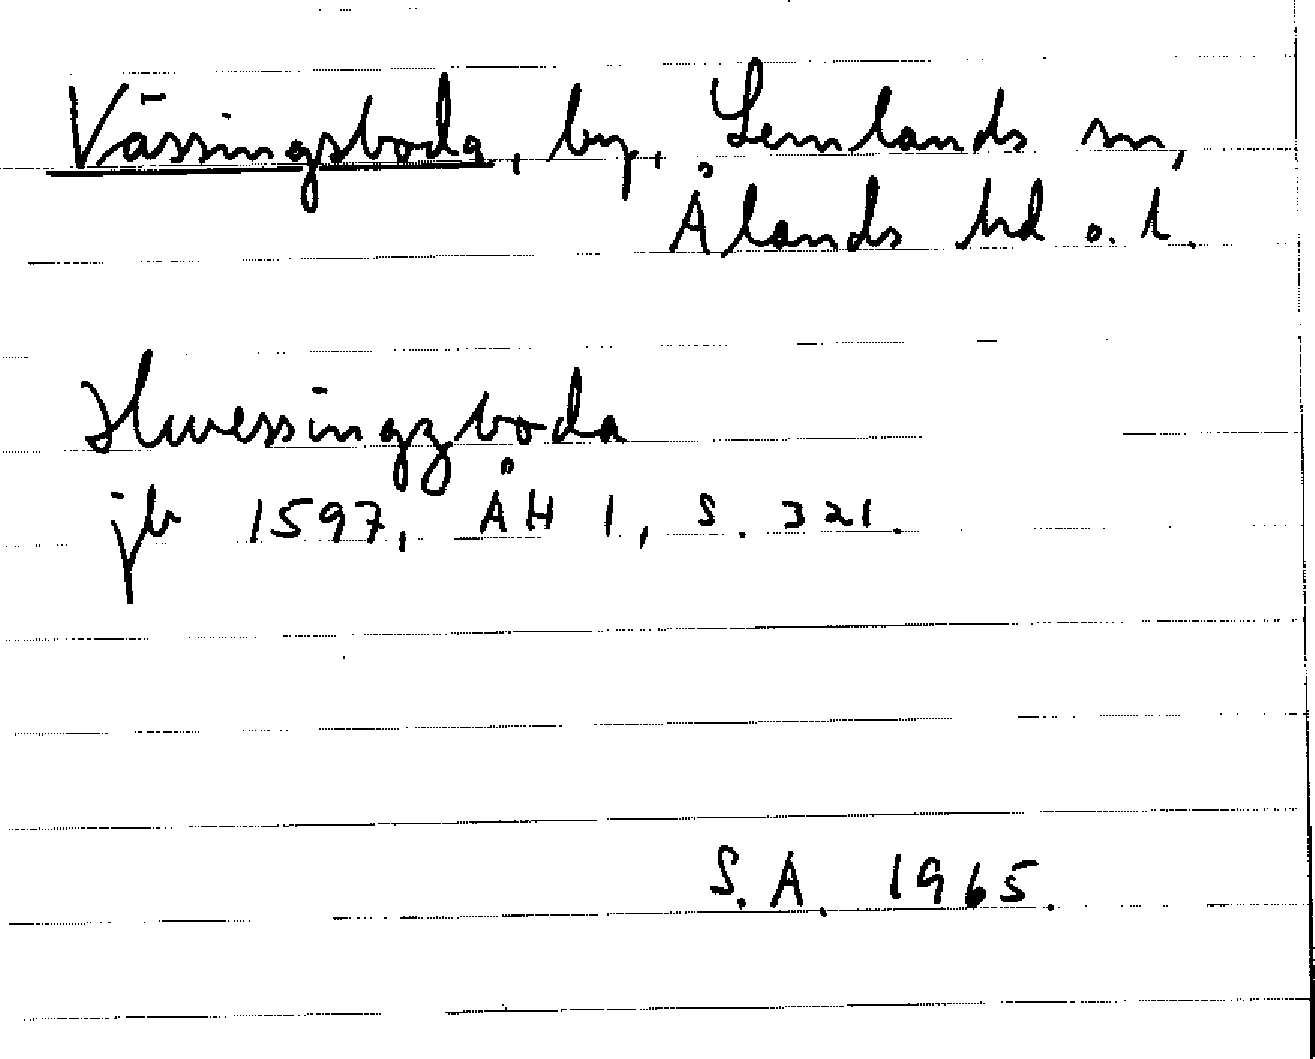 Vässingsboda, by, Lemlands sn,
Ålands hd o. l.
Hwessingzboda
jb 1597, ÅH 1, s. 321.
S.A. 1965.